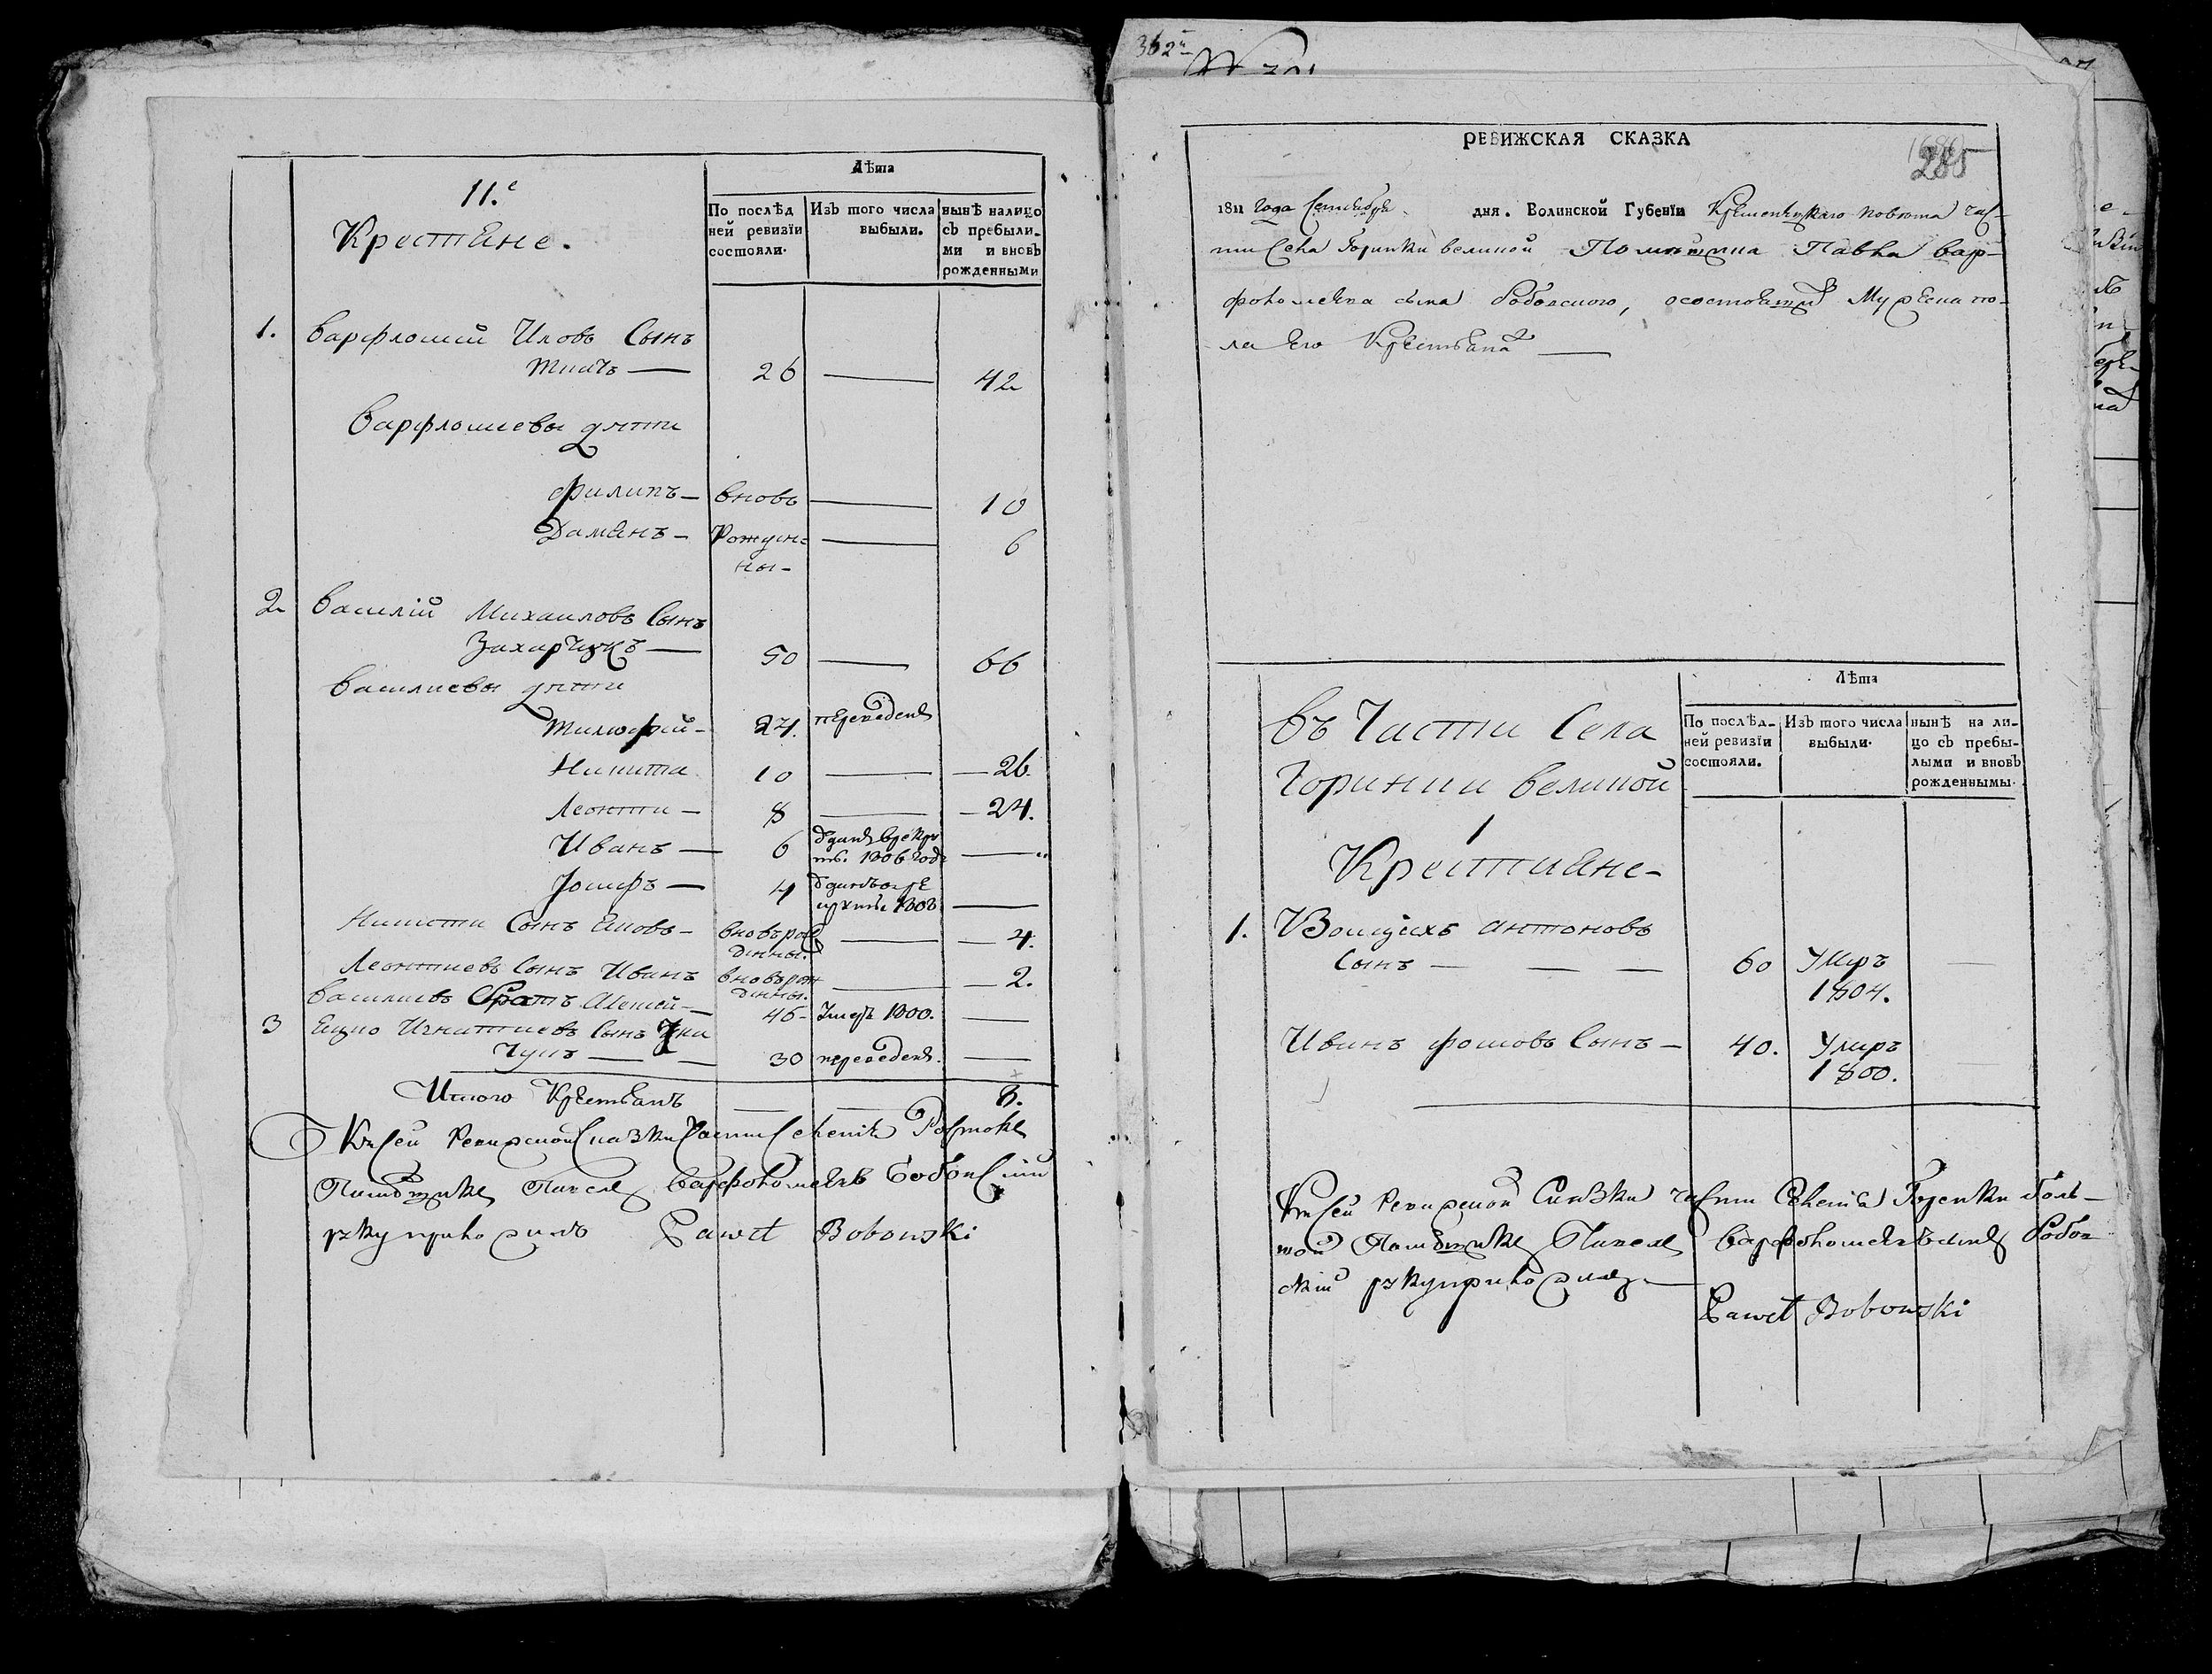 11.е
Крестяне.
Лѣта
По послѣд
ней ревизїи
состояли.
Изъ того числа
выбыли.
нынѣ налицо
съ пребыли-
ми и вновь
рожденными
1. Варфломей Иловъ Сынъ
Ткачъ — 26 — 42
Варфломеевы дѣти
Филипъ — вновь — 10
Дамянъ — Рожден= — 6
ны-
2 Василій Михаиловъ Сынъ
Захарчукъ — 50 — 66
Василиевы дѣти
24. переведенъ
Никита 10 — 26.
Леонти — 8 — 24.
Иванъ — 6
1806 года —
Іосифъ — 4
1808 —
Сынъ — вновьрож — 4.
денны.
Леонтиевъ Сынъ Иванъ вновьрож — 2.
денны.
Василиевъ Братъ Алексей — 46- Умеръ 1800. —
3 Ецко Игнатиевъ Сынъ
30 переведенъ. —
Итого Крестьянъ — — 8.
К сей Ревижской Сказки Части Селения
Помещикъ Павелъ Варфоломеевъ Бобовский
руку приложилъ Paweł Bobowski
362
РЕВИЖСКАЯ СКАЗКА
285
1811 Года Сентября дня. Волинской Губенїи Кременецкаго Повѣта час-
ти Села Горинки великой Помѣщика Павла Вар-
фоломеева сына Бобовского, о состоящих Мужеска по-
ла Его Крестьянах —
Лѣта
Въ Части Села
Горинки великой
1
Крестиане-
По послѣд-
ней ревизїи
состояли.
Изъ того числа
выбыли.
нынѣ на ли-
цо съ пребы-
лыми и вновь
рожденнымы.
1. Войцехъ антоновъ
Сынъ — — — 60 Умръ —
1804.
Иванъ фомовъ Сынъ — 40. Умиръ —
1800.
К сей Ревижской Сказки части Селения Горенки боль-
шой Помещикъ Павелъ Варфоломеевъ сынъ Бобов
ский руку приложилъ —
Paweł Bobowski